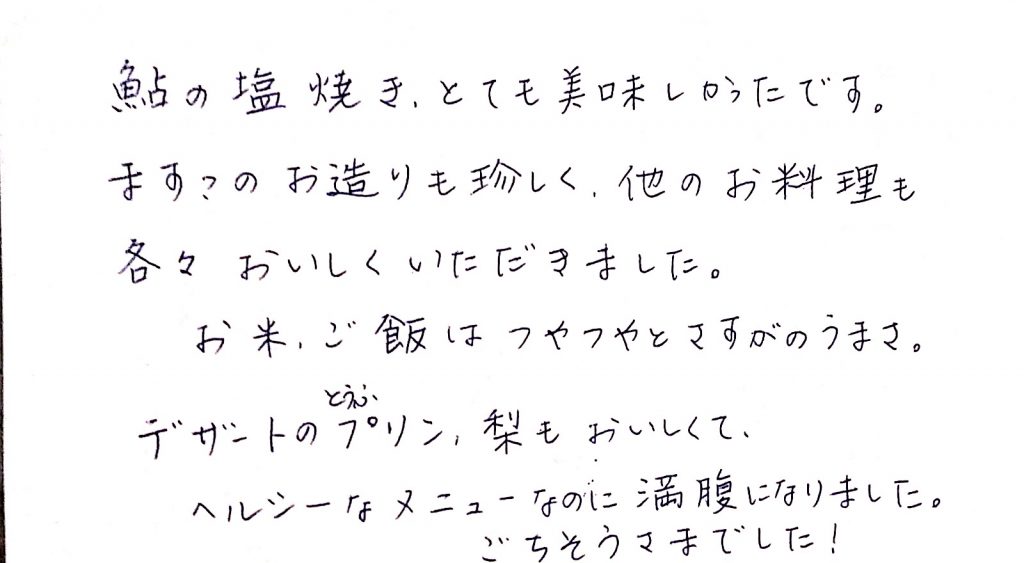 鮎の塩焼き、とても美味しかったです。
ます?のお造りも珍しく、他のお料理も
各々 おいしくいただきました。
お米、ご飯は つやつやとさすがのうまさ。
とうふ
デザートのプリン、梨も おいしくて、
ヘルシーなメニューなのに満腹になりました。
ごちそうさまでした!